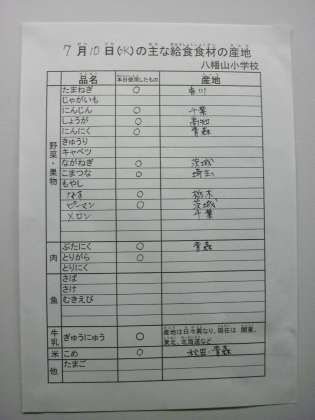 7月10日(水)の主な給食食材の産地
八幡山小学校
品名 本日使用したもの 産地
野菜・果物
たまねぎ ○ 香川
じゃがいも
にんじん ○ 千葉
しょうが ○ 高知
にんにく ○ 青森
きゅうり
キャベツ
ながねぎ ○ 茨城
こまつな ○ 埼玉
もやし
なす ○ 栃木
ピーマン ○ 茨城
メロン ○ 千葉
肉
ぶたにく ○ 青森
とりがら ○
とりにく
魚
さば
さけ
むきえび
牛乳
ぎゅうにゅう ○ 産地は日々異なり、現在は、関東、
東北、北海道など
米 こめ ○ 秋田・青森
他 たまご